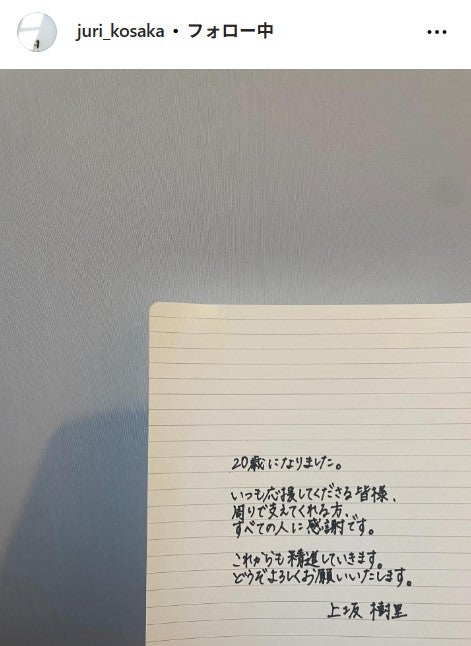 juri_kosaka • フォロー中
20歳になりました。
いつも応援してくださる皆様、
周りで支えてくれる方、
すべての人に感謝です。
これからも精進していきます。
どうぞよろしくお願いいたします。
上坂 樹里